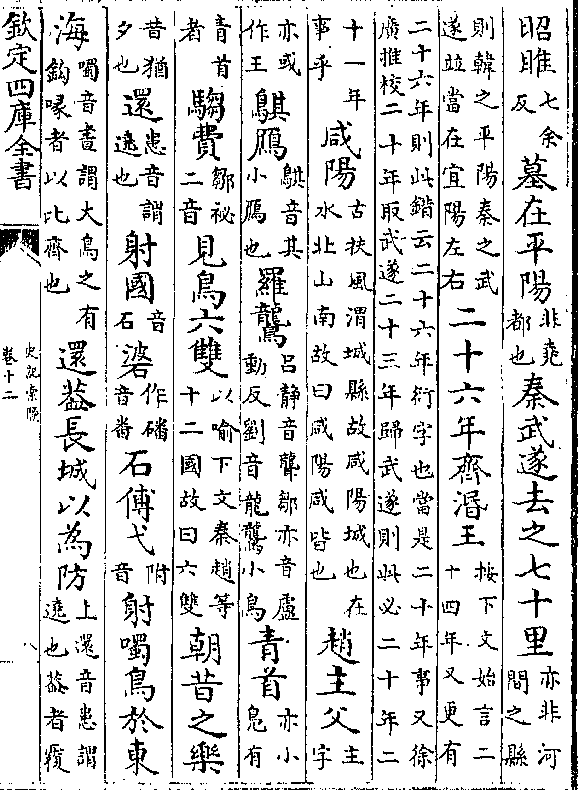 昭雎七余反墓在平陽非堯都也秦武遂去之七十里亦非河間之縣
則韓之平陽秦之武遂竝當在宜陽左右二十六年齊湣王按下文始言二十四年又更有
二十六年則此錯云二十六年衍字也當是二十年事又徐廣推校二十年取武遂二十三年歸武遂則此必二十年二
十一年事乎咸陽古扶風渭城縣故咸陽城也在水北山南故曰咸陽咸皆也趙主父主字
亦或作王鶀鴈鶀音其小鴈也羅鸗呂靜音聾鄒亦音盧動反劉音龍鸗小鳥青首亦小鳬有
青首者騶費鄒祕二音見鳥六雙以喻下文秦趙等十二國故曰六雙朝昔之樂
昔猶夕也還患音謂遶也射國音石碆作磻音畨石傅弋附音射噣鳥於東
海噣音晝謂大鳥之有鈎喙者以比齊也還葢長城以為防上還音患謂遶也葢者覆
欽定四庫全書
史記索隱
卷十二
八